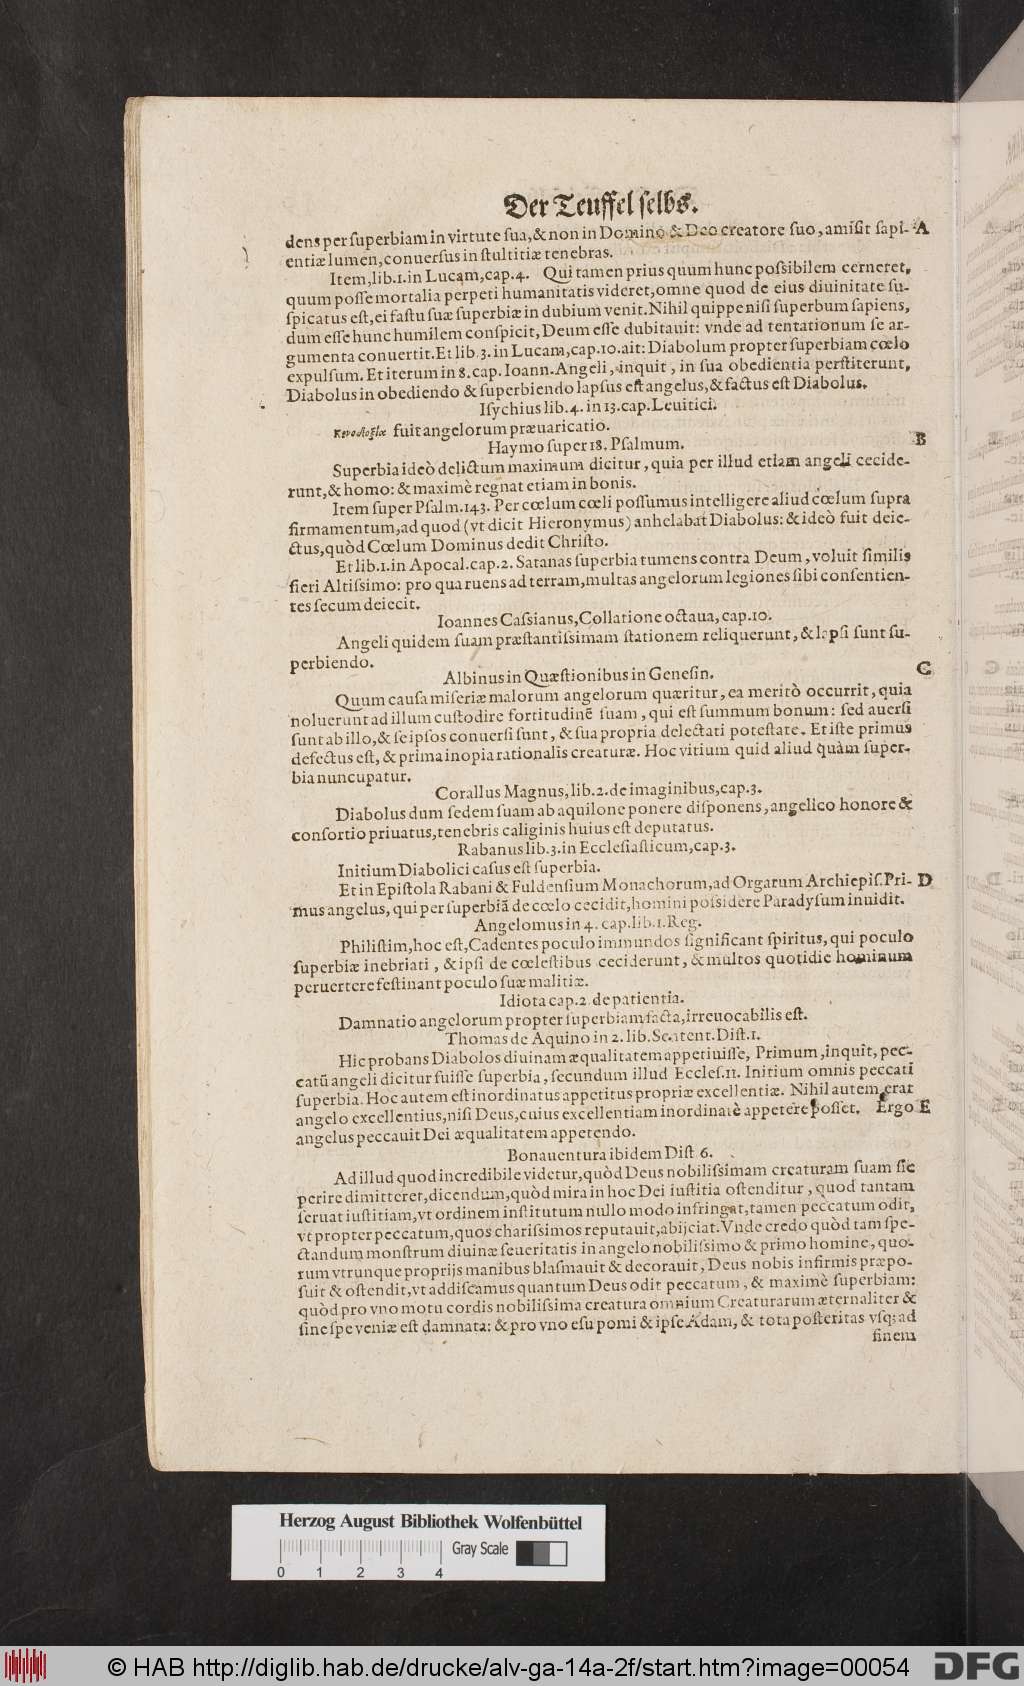 Der Teuffel selbs.
dens per superbiam in virtute sua, & non in Domino & Deo creatore suo, amisit sapi- A
entiæ lumen, conuersus in stultitiæ tenebras.
Item, lib. 1. in Lucam, cap. 4. Qui tamen prius quum hunc possibilem cerneret,
quum posse mortalia perpeti humanitatis videret, omne quod de eius diuinitate su-
spicatus est, ei fastu suæ superbiæ in dubium venit. Nihil quippe nisi superbum sapiens,
dum esse hunc humilem conspicit, Deum esse dubitauit: vnde ad tentationum se ar-
gumenta conuertit. Et lib. 3. in Lucam, cap. 10. ait: Diabolum propter superbiam cœlo
expulsum. Et iterum in 8. cap. Ioann. Angeli, inquit, in sua obedientia perstiterunt,
Diabolus inobediendo & superbiendo lapsus est angelus, & factus est Diabolus.
Isychius lib. 4. in 13. cap. Leuitici.
Κενοδοξία fuit angelorum præuaricatio.
Haymo super 18. Psalmum. B
Superbia ideò delictum maximum dicitur, quia per illud etiam angeli cecide-
runt, & homo: & maximè regnat etiam in bonis.
Item super Psalm. 143. Per cœlum cœli possumus intelligere aliud cœlum supra
firmamentum, ad quod (vt dicit Hieronymus) anhelabat Diabolus: & ideò fuit deie-
ctus, quòd Cœlum Dominus dedit Christo.
Et lib. 1. in Apocal. cap. 2. Satanas superbia tumens contra Deum, voluit similis
fieri Altissimo: pro qua ruens ad terram, multas angelorum legiones sibi consentien-
tes secum deiecit.
Ioannes Cassianus, Collatione octaua, cap. 10.
Angeli quidem suam præstantissimam stationem reliquerunt, & lapsi sunt su-
perbiendo.
Albinus in Quæstionibus in Genesin. C
Quum causa miseriæ malorum angelorum quæritur, ea meritò occurrit, quia
noluerunt ad illum custodire fortitudinē suam, qui est summum bonum: sed auersi
sunt ab illo, & se ipsos conuersi sunt, & sua propria delectati potestate. Et iste primus
defectus est, & prima inopia rationalis creaturæ. Hoc vitium quid aliud quàm super-
bia nuncupatur.
Corallus Magnus, lib. 2. de imaginibus, cap. 3.
Diabolus dum sedem suam ab aquilone ponere disponens, angelico honore &
consortio priuatus, tenebris caliginis huius est deputatus.
Rabanus lib. 3. in Ecclesiasticum, cap. 3.
Initium Diabolici casus est superbia.
Et in Epistola Rabani & Fuldensium Monachorum, ad Orgarum Archiepis. Pri- D
mus angelus, qui per superbiā de cœlo cecidit, homini possidere Paradysum inuidit.
Angelomus in 4. cap. lib. 1. Reg.
Philistim, hoc est, Cadentes poculo immundos significant spiritus, qui poculo
superbiæ inebriati, & ipsi de cœlestibus ceciderunt, & multos quotidie hominum
peruertere festinant poculo suæ malitiæ.
Idiota cap. 2. de patientia.
Damnatio angelorum propter superbiam facta, irreuocabilis est.
Thomas de Aquino in 2. lib. Sentent. Dist. 1.
Hic probans Diabolos diuinam æqualitatem appetiuisse, Primum, inquit, pec-
catū angeli dicitur fuisse superbia, secundum illud Eccles. 11. Initium omnis peccati
superbia. Hoc autem est inordinatus appetitus propriæ excellentiæ. Nihil autem erat
angelo excellentius, nisi Deus, cuius excellentiam inordinatè appetere posset. Ergo E
angelus peccauit Dei æqualitatem appetendo.
Bonauentura ibidem Dist 6.
Ad illud quod incredibile videtur, quòd Deus nobilissimam creaturam suam sic
perire dimitteret, dicendum, quòd mira in hoc Dei iustitia ostenditur, quod tantam
seruat iustitiam, vt ordinem institutum nullo modo infringat, tamen peccatum odit,
vt propter peccatum, quos charissimos reputauit, abijciat. Vnde credo quòd tam spe-
ctandum monstrum diuinæ seueritatis in angelo nobilissimo & primo homine, quo-
rum vtrunque proprijs manibus blasmauit & decorauit, Deus nobis infirmis præpo-
suit & ostendit, vt addiscamus quantum Deus odit peccatum, & maximè superbiam:
quòd pro vno motu cordis nobilissima creatura omnium Creaturarum æternaliter &
sine spe veniæ est damnata: & pro vno esu pomi & ipse Adam, & tota posteritas vsq; ad
finem
Herzog August Bibliothek Wolfenbüttel
Gray Scale
0 1 2 3 4
© HAB http://diglib.hab.de/drucke/alv-ga-14a-2f/start.htm?image=00054
DFG